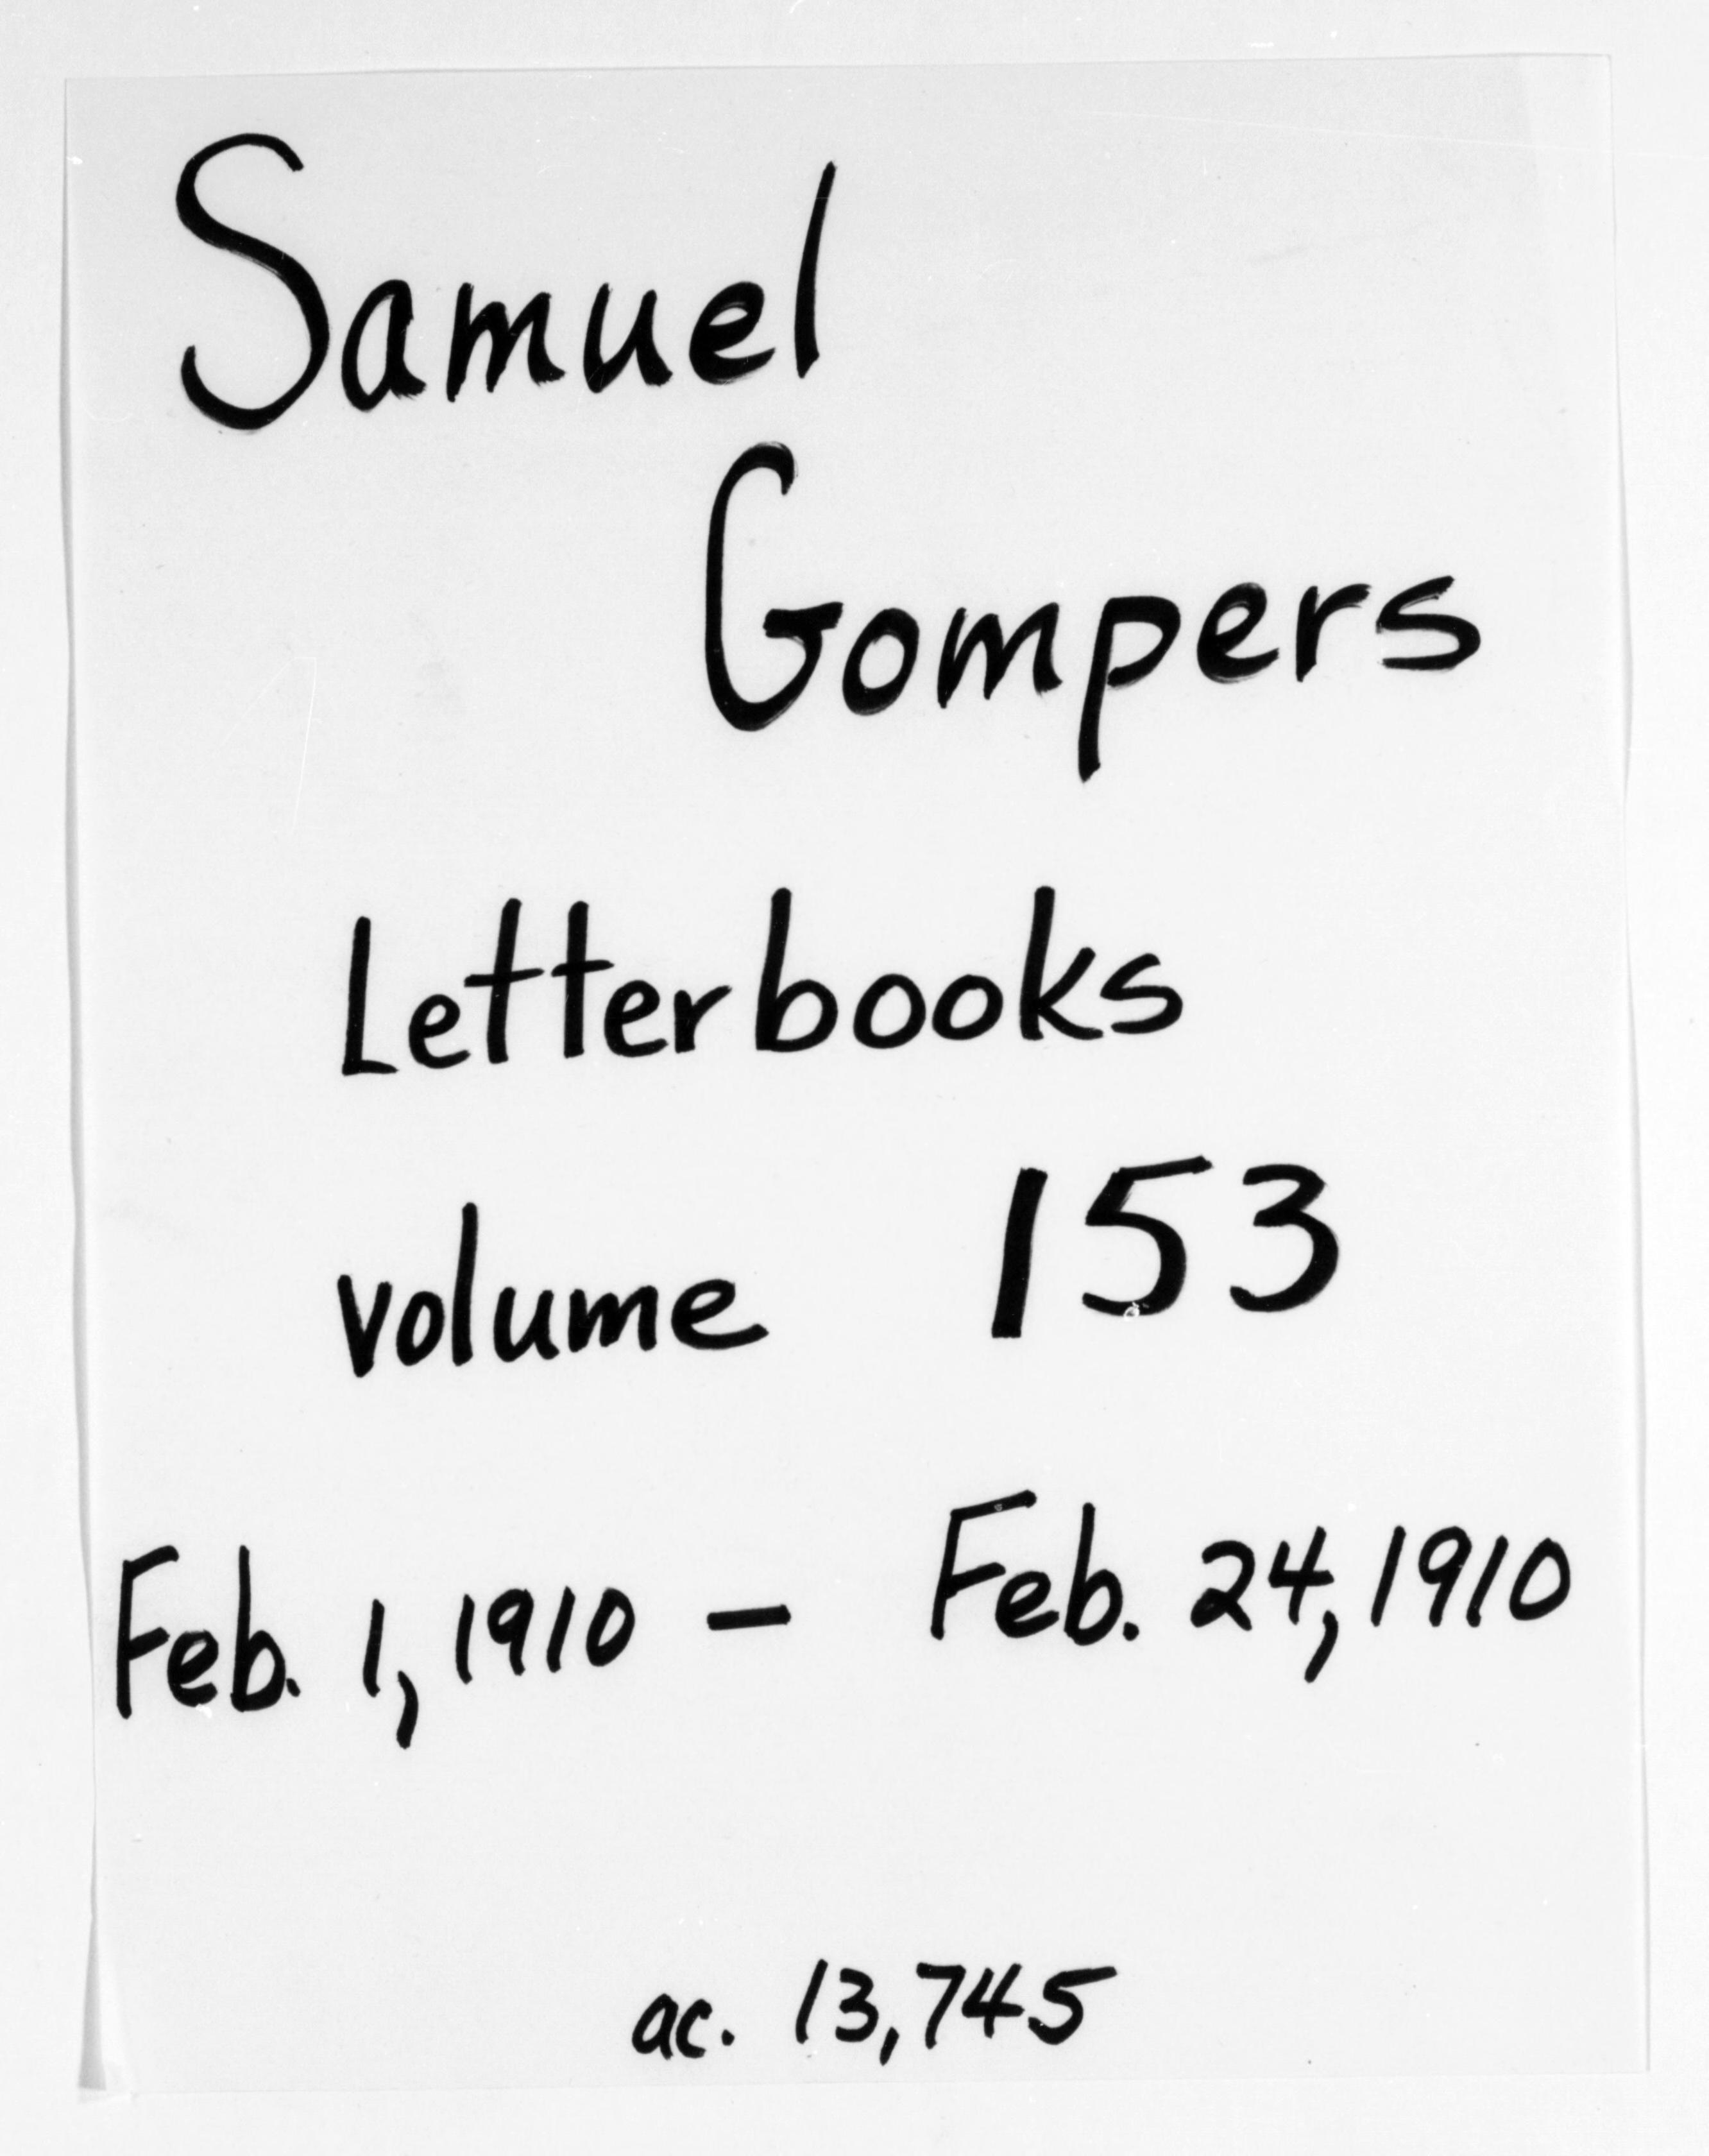 Samuel
Gompers
Letterbooks
volume 153
Feb. 1, 1910 – Feb. 24, 1910
ac. 13,745